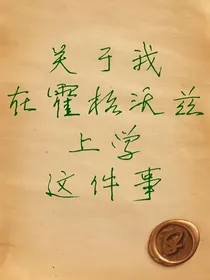 关于我
在霍格沃兹
上学
这件事